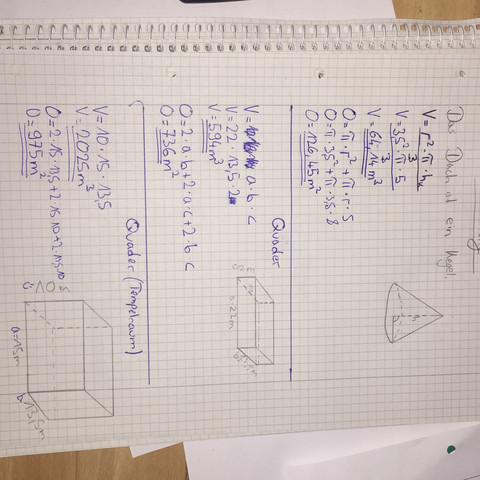 Das Dach ist ein Kegel.
V = r² · π · hₖ
3
V = 3,5² · π · 5
3
V = 64,14 m³
O = π · r² + π · r · s
O = π · 3,5² + π · 3,5 · 8
O = 126,45 m²
Quader
V = a · b · c
V = 22 · 13,5 · 2
V = 594 m³
O = 2 · a · b + 2 · a · c + 2 · b · c
O = 736 m²
a = 22m
Quader (Tempelraum)
V = 10 · 15 · 13,5
V = 2025 m³
O = 2 · 15 · 13,5 + 2 · 15 · 10 + 2 · 13,5 · 10
O = 975 m²
c = 10 m
a = 15m
b = 13,5m